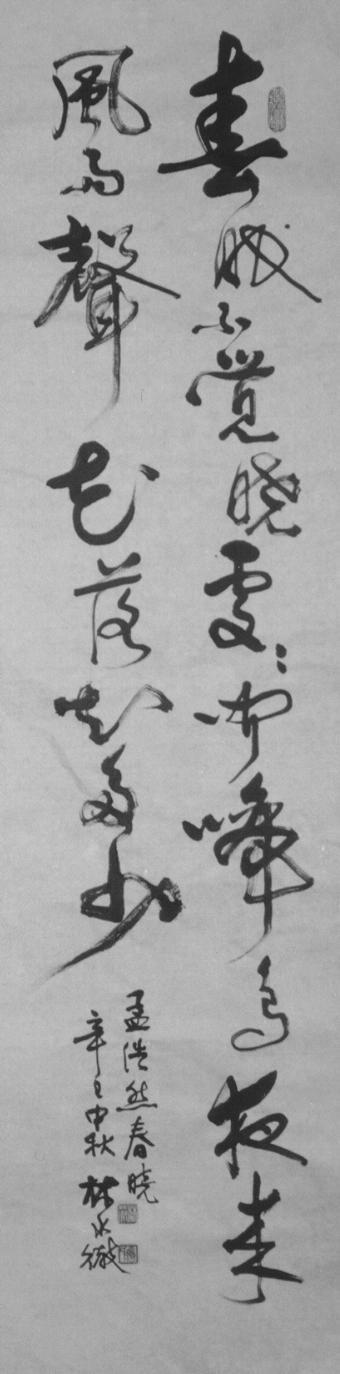 春眠不覺曉處々聞啼鳥夜來
風雨聲花落知多少
孟浩然春曉
辛巳中秋 林